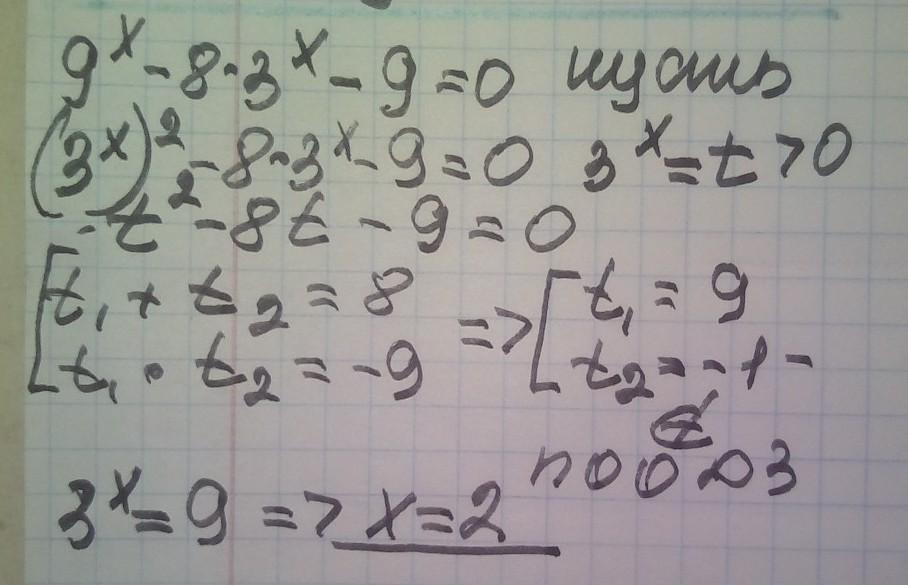 9^x - 8·3^x - 9 = 0 пусть
(3^x)^2 - 8·3^x - 9 = 0 3^x = t > 0
t^2 - 8t - 9 = 0
[t₁ + t₂ = 8
t₁ · t₂ = -9
=> [t₁ = 9
t₂ = -1 -
∉ по ОДЗ
3^x = 9 => x = 2